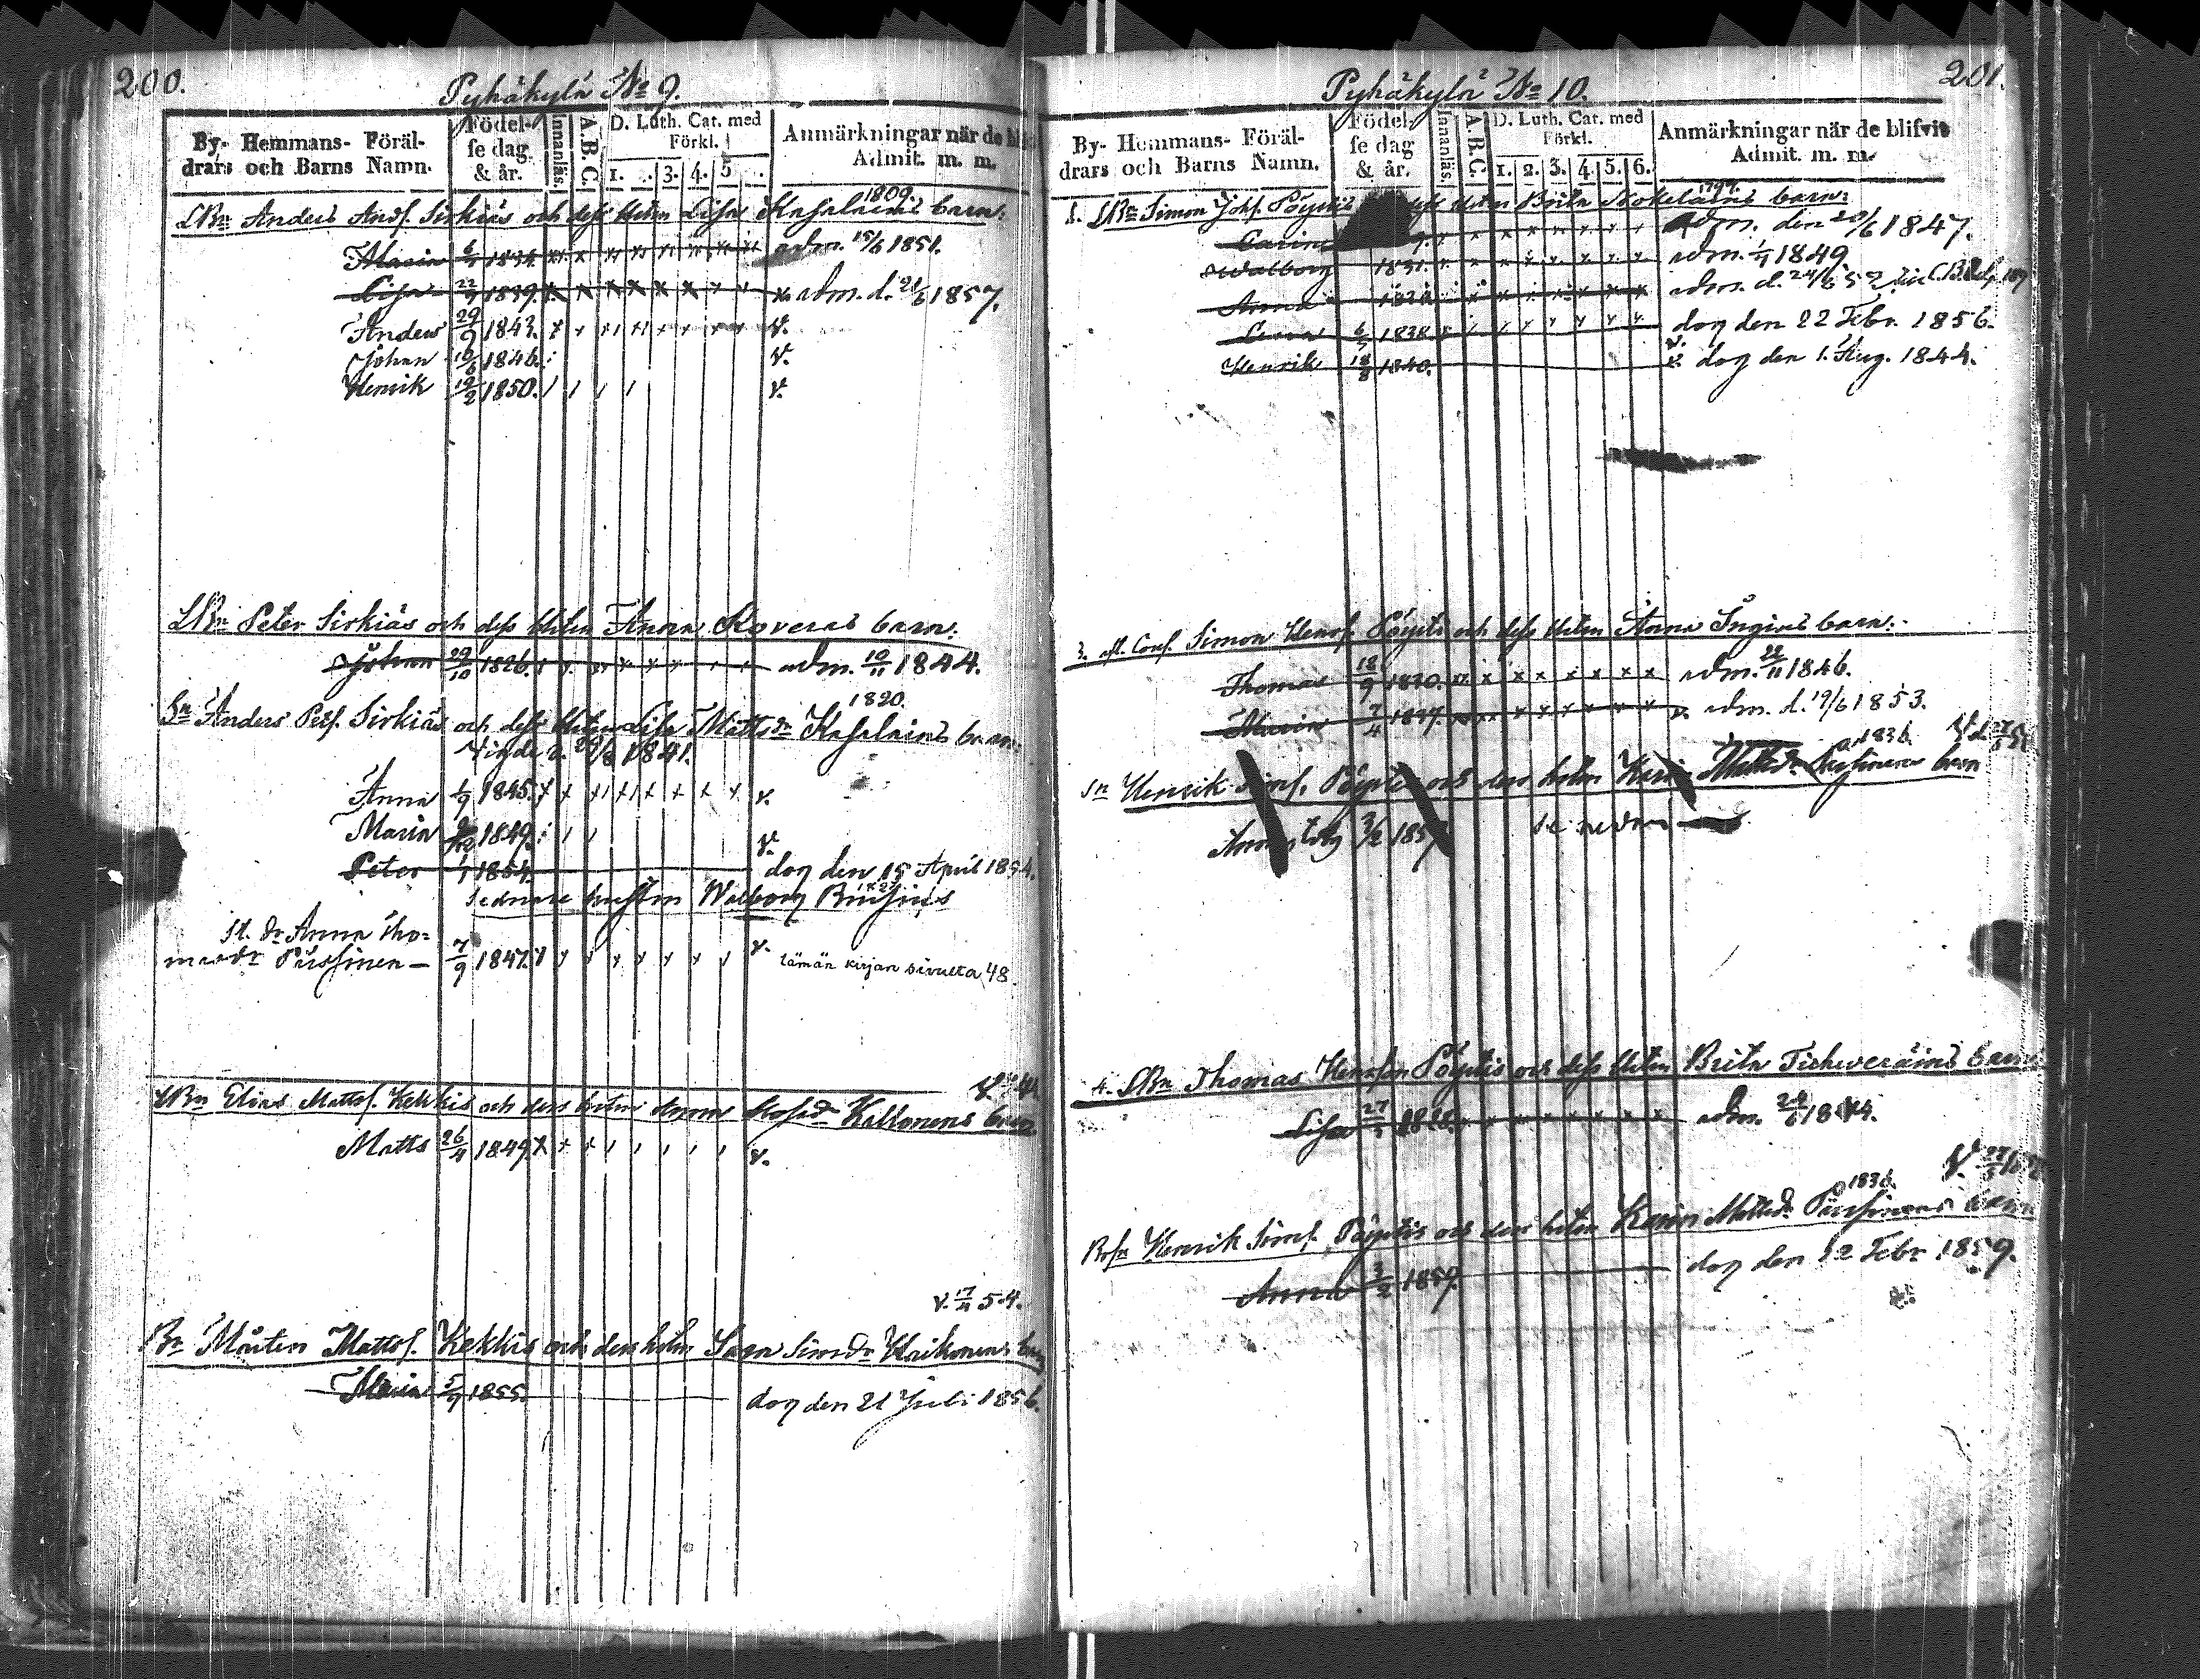 200.
Pyhäkylä No 9.
By- Hemmans- Föräl-
drars och Barns Namn.
Födel-
se dag
& år.
Innanläs.
A. B. C.
D. Luth. Cat. med
Förkl.
1. 3. 4. 5
Anmärkningar när de bli
Admit. m. m.
1809.
LBn Anders Andf. Sirkiäs och dess hustru Lisa Kasalains barn:
Maria 1834. adm. 15/6 1851.
Lisa 22/9 1839. adm. d. 21/6 1857.
Anders 29/9 1843. v.
Johan 10/6 1846. v.
Henrik 19/2 1850. v.
LBn Peter Sirkiäs och dess hustru Anna Koveras barn:
Johan 29/10 1826. adm. 10/11 1844.
1820.
Sn Anders Pers. Sirkiäs och dess hustru Lisa Mattsdr Kasalains barn:
Vigde d. 29/8 1841.
Anna 1/9 1845. v.
Maria 1849. v.
Peter 1/1 1854. dog den 15 April 1854.
sednare hustrun Walborg
St. dr Anna Tho-
masdr Pärssinen – 7/9 1847. v. tämän kirjan sivulta 48.
LBn Elias Mattsf. Kekkis och dess hustru Anna Kallonens barn
Matts 26/4 1849. v.
v. 17/4 54.
Bn Mårten Mattsf. Kekkis och dess hustru Sara Simsdr Kaikonens barn
Maria 5/9 1855. dog den 21 Juli 1856.
201.
Pyhäkylä No 10.
By- Hemmans- Föräl-
drars och Barns Namn.
Födel-
se dag
& år.
Innanläs.
A. B. C.
D. Luth. Cat. med
Förkl.
1. 2. 3. 4. 5. 6.
Anmärkningar när de blifvit
Admit. m. m.
1799.
1. LBn Simon Johf. Pöystis dess hustru Brita barn:
Carin adm. den 20/6 1847.
Walborg 1831. adm. 1849
Anna adm. d. 24/6 52
Lena 1838. dog den 22 Febr. 1856.
Henrik 18/8 1840. v. dog den 1. Aug. 1844.
3. Simon Henrf. Pöysti och dess hustru Anna Ingins barn:
Thomas 18/9 1830. adm. 22/11 1846.
Maria 7/4 1837. v. adm. d. 19/6 1853.
1836.
Sn Henrik Simf. Pöystis och dess hustru Karin Mattsdr Pärssinens barn
Anna 3/2 185 se nedan
4. LBn Thomas Henrsson Pöystis och dess hustru Brita barn
Lisa 27 adm. 24/6 1844.
1836.
Henrik Simf. Pöystis och dess hustru Karin Mattsdr Pärssinens barn
Anna 3/2 1859. dog den 12 Febr 1859.